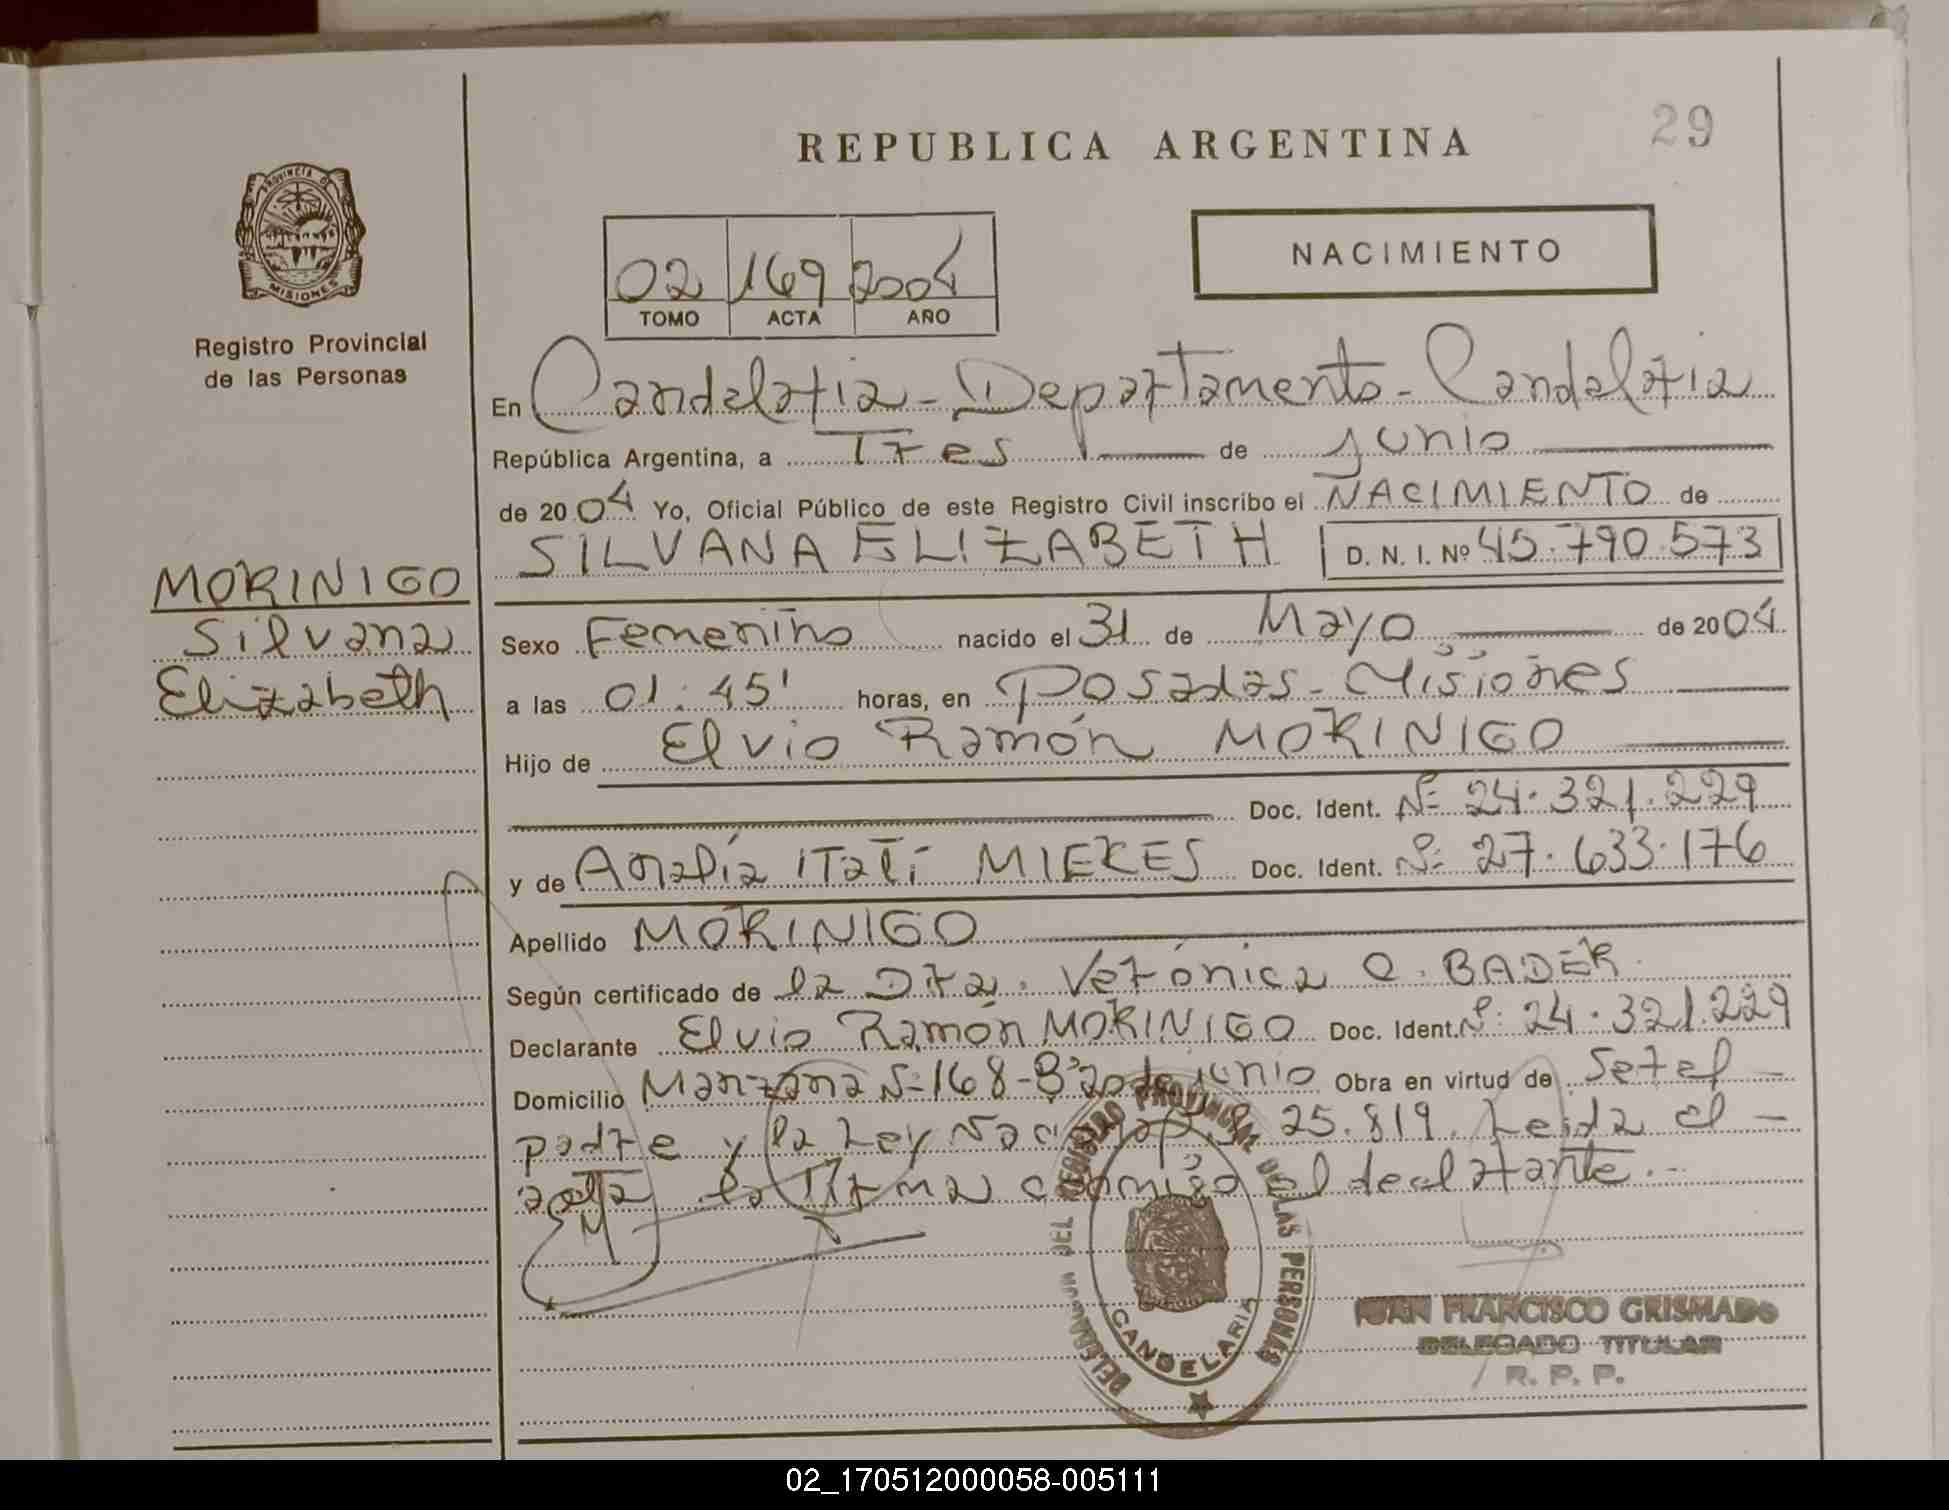 29
REPUBLICA ARGENTINA
PROVINCIA DE
MISIONES
Registro Provincial
de las Personas
02 169 2004
TOMO ACTA AÑO
NACIMIENTO
En Candelaria - Departamento - Candelaria
República Argentina, a Tres de junio
de 2004 Yo, Oficial Público de este Registro Civil inscribo el NACIMIENTO de
SILVANA ELIZABETH D. N. I. Nº 45.790.573
MORINIGO
Silvana
Elizabeth
Sexo Femenino nacido el 31 de Mayo de 2004
a las 01:45' horas, en Posadas - Misiones
Hijo de Elvio Ramón MORINIGO
Doc. Ident. Nº 24.321.229
y de Analía ITatí MIERES Doc. Ident. Nº 27.633.176
Apellido MORINIGO
Según certificado de la Dra. Verónica O. BADER
Declarante Elvio Ramón MORINIGO Doc. Ident. Nº 24.321.229
Domicilio Manzana Nº 168 - Bº 20 de junio Obra en virtud de Ser el
padre y la Ley Nacional 25.819. Leida el
acta la firma conmigo el declarante.
DELEGADO DEL REGISTRO PROVINCIAL DE LAS PERSONAS
CANDELARIA
JUAN FRANCISCO GRISMADO
DELEGADO TITULAR
R. P. P.
02_170512000058-005111